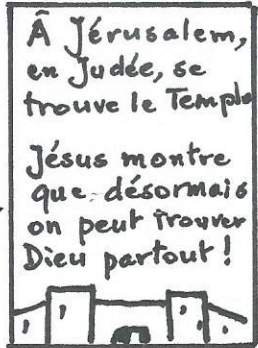 Â Jérusalem,
en Judée, se
trouve le Temple
Jésus montre
que désormais
on peut trouver
Dieu partout !